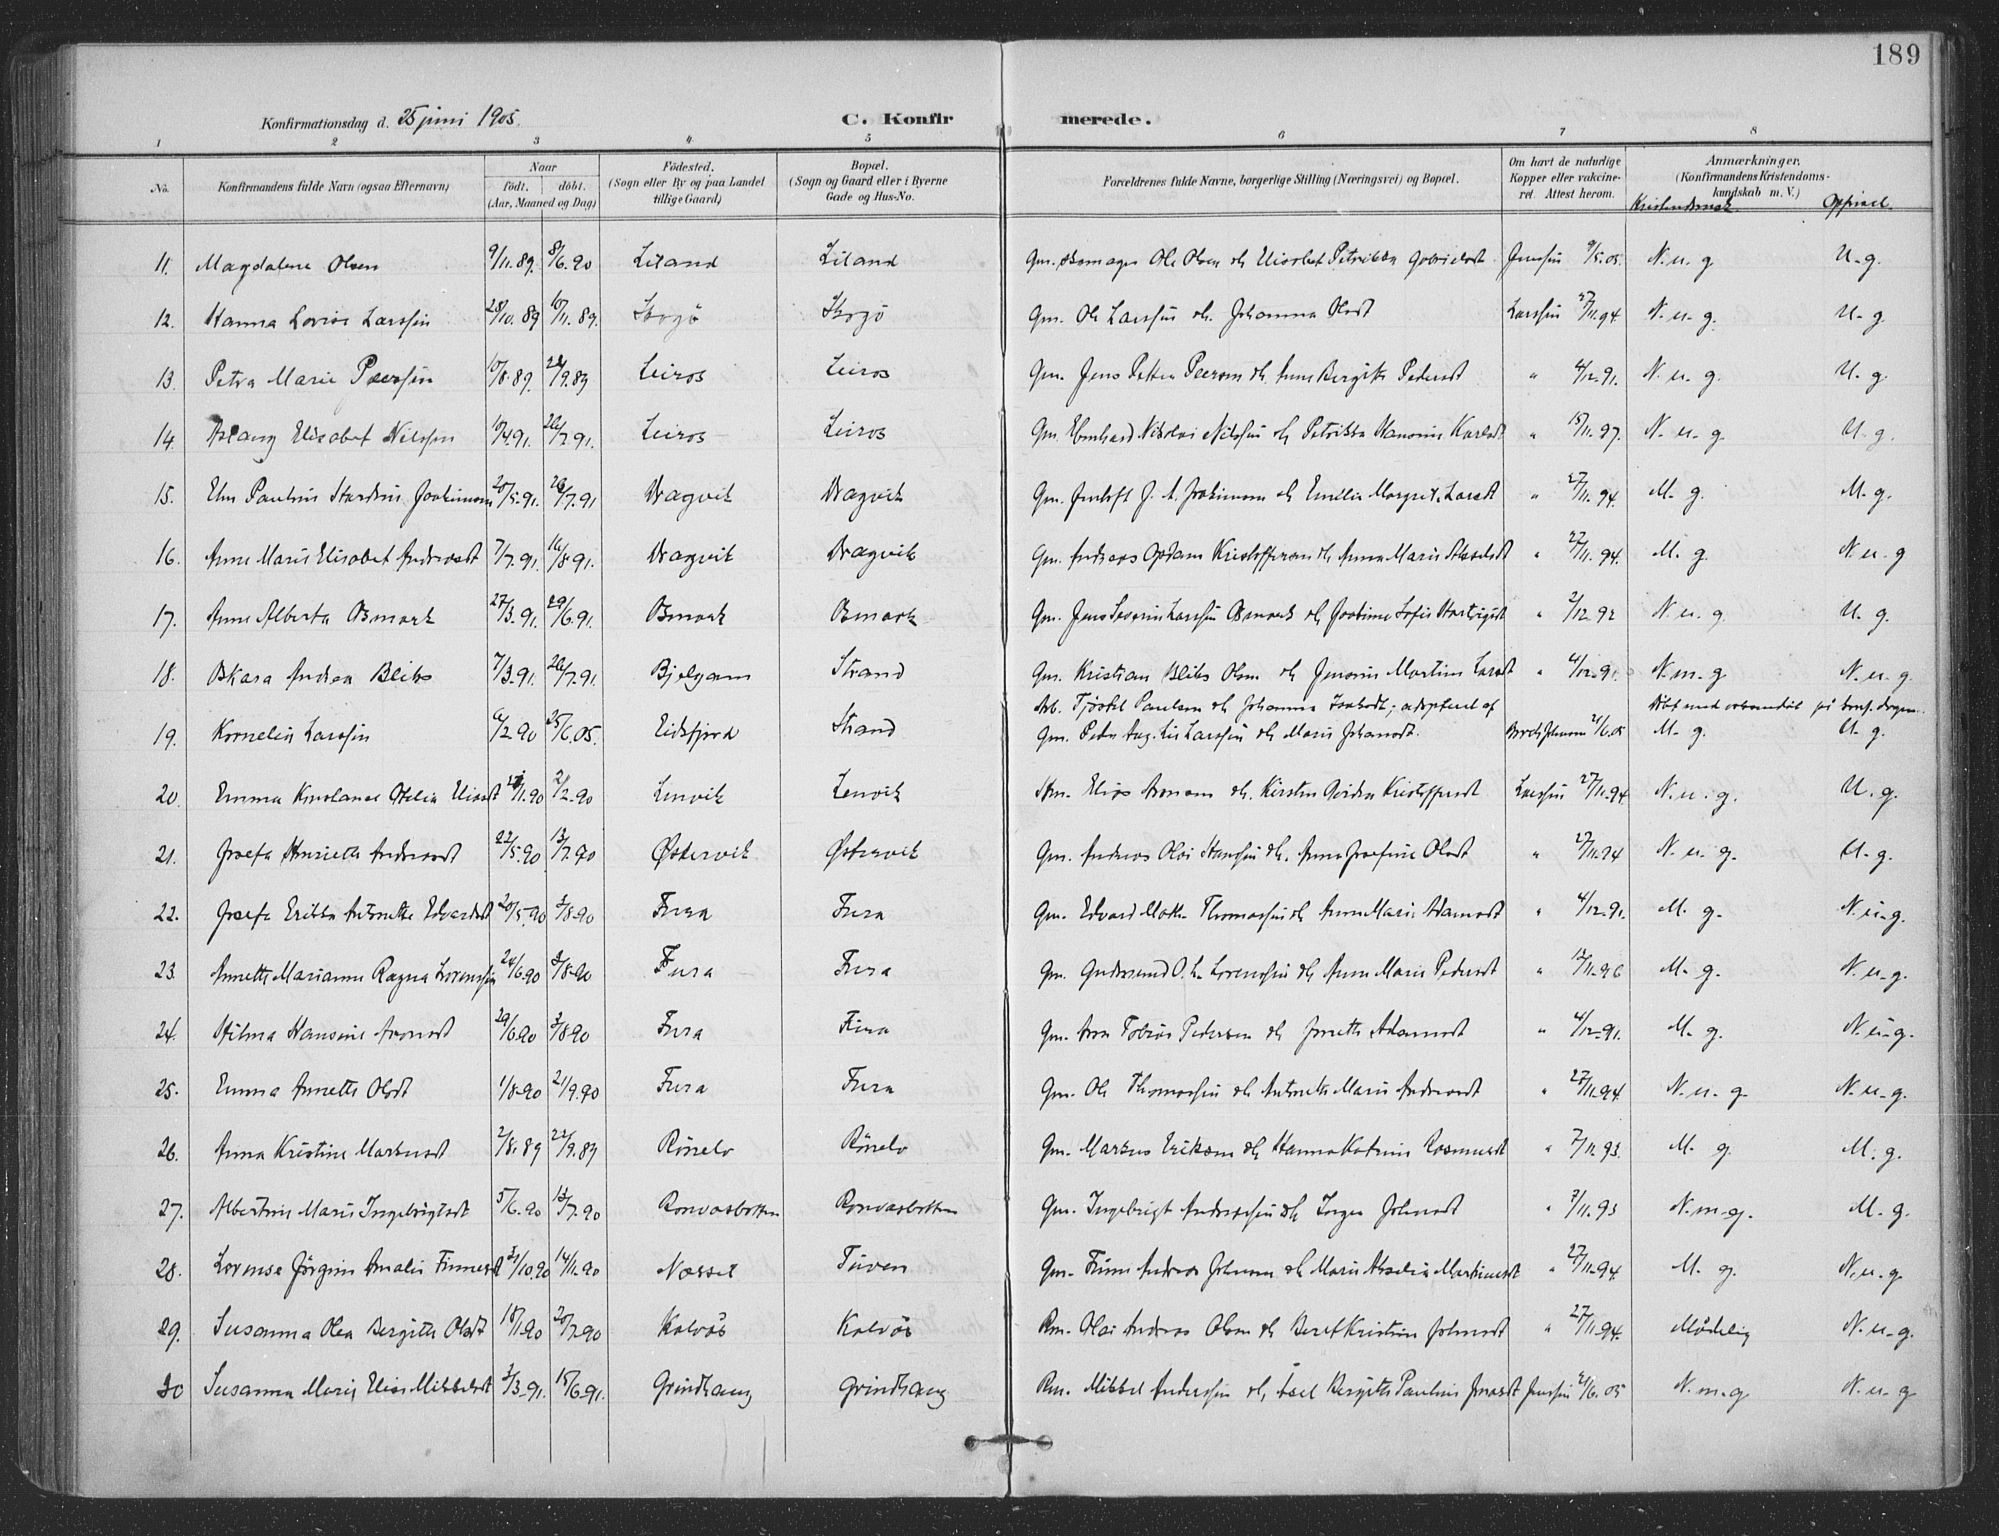 189
Konfirmationsdag d. 25 juni 1905. C. Konfirmerede.
1 2 3 4 5 6 7 8
No. Konfirmandens fulde Navn (ogsaa Efternavn) Naar født. døbt. (Aar, Maaned og Dag) Fødested. (Sogn eller By og paa Landet tillige Gaard) Bopæl. (Sogn og Gaard eller i Byerne Gade og Hus-No. Forældrenes fulde Navne, borgerlige Stilling (Næringsvei) og Bopæl. Om havt de naturlige Kopper eller vakcineret. Attest herom. Anmærkninger. (Konfirmandens Kristendomskundskab m. V.)
Opførsel.
11. Magdalene Olsen 9/11.89. 8/6.90 Liland Liland Gm. Ole Olsen Petrikka Jenssen 9/5.05. N. u. g. U. g.
12. Hanna Lovise Larssen 28/10.89 10/11.89. Skogö Skogö Gm. Ole Larssen Johanna Olsdt Larssen 27/11.94. N. u. g. U. g.
13. Petra Marie Peerssen 10/8.89. 22/9.89 Leiros Leiros Gm. Jens Petter Peersen Anne Bergitte Pedersdt " 4/12.91. N. u. g. U. g.
14. Aslaug Elisabet Nilssen 10/4.91. 26/7.91. Leiros Leiros Gm. Nikolai Nilssen Petrikka Hansine Karlsdt " 15/11.97. N. u. g. U. g.
15. Pauline Joakimsen 20/5.91. 26/7.91 Dragvik Dragvik Gm. J. A. Joakimsen Emilie Margret. Larsdt " 27/11.94. M. g. M. g.
16. Anne Marie Elisabet Andreasdt 7/7.91. 16/8.91. Dragvik Dragvik Gm. Andreas Kristoffersen Anna Marie Akseldt " 27/11.94. M. g. N. u. g
17. Anne Alberta Osmark 27/3.91. 29/6.91. Osmark Osmark Gm. Jens Severin Larssen Osmark Joakime Sofie Hartvigsdt " 2/12.92 N. u. g. U. g.
18. Oskara Andrea Bliks 7/3.91. 26/7.91. Bjelgam Strand Gm. Kristian Bliks Olsen Jensine Martine Larsdt " 4/12.91. N. m. g N. u. g.
Arb. Paulsen Johanna adopteret af
19. Kornelie Larssen 6/2.90 25/6.05. Eidsfjord Strand Gm. Peder Aug. Larssen Marie Johansdt. 21/6.05 M. g. U. g.
20. Emma Konstanse Otelie Eliasdt 2/2.90 Lenvik Lenvik Elias Aronsen Kirsten Kristoffersdt Larssen 27/11.94 N. u. g. U. g.
21. Josefa Henriette Andreasdt 22/5.90 13/7.90 Østervik Østervik Gm. Andreas Olai Hanssen Anna Josefine Olsdt " 27/11.94 N. u. g. U. g.
22. Josefa Erikka Antonette Edvardsdt 20/5.90 3/8.90 Fura Fura Gm. Edvard Thomassen Anne Marie Adamsdt " 4/12.91. M. g. N. u. g.
23. Annette Marianne Ragna Lorenssen 24/6.90 3/8.90 Fura Fura Gm. O. L. Lorenssen Anne Marie Pedersdt " 12/11.96 M. g. N. u. g.
24. Hilma Hansine Aronsdt 29/6.90 3/8.90 Fura Fura Gm. Aron Tobias Pedersen Adamsdt " 4/12.91. M. g. N. u. g.
25. Emma Annette Olsdt 1/8.90 21/9.90 Fura Fura Gm. Ole Thomassen Antonette Marie Andreasdt " 27/11.94. N. u. g. N. u. g.
26. Anna Kristine Markusdt 2/8.89 22/9.89 Rönelv Rönelv Gm. Markus Eriksen Hanna Katrine Rasmusdt " 7/11.93. M. g. M. g.
27. Albertine Marie Ingebrigtsdt 5/6.90 13/7.90 Ronvasbotten Ronvasbotten Gm. Ingebrigt Andreassen Inger Johnsdt " 7/11.93 N. m. g. M. g.
28. Lorense Jörgine Amalie Finnesdt 3/10.90 14/11.90 Nesset Tuven Gm. Finn Andreas Johnsen Marie Akselia Martinusdt " 27/11.94. M. g. N. u. g.
29. Susanna Olea Bergitte Olsdt 18/1.90 20/7.90 Kalvös Kalvös Rm. Olai Andreas Olsen Beret Kristine Johnsdt " 27/11.94. Mådelig N. u. g.
30 Susanna Marie Elise Mikkelsdt 3/3.91. 15/6.91. Grindhaug Grindhaug Rm. Mikkel Anderssen Bergitte Pauline Jonasdt Jenssen 21/6.05 N. m. g N. u. g